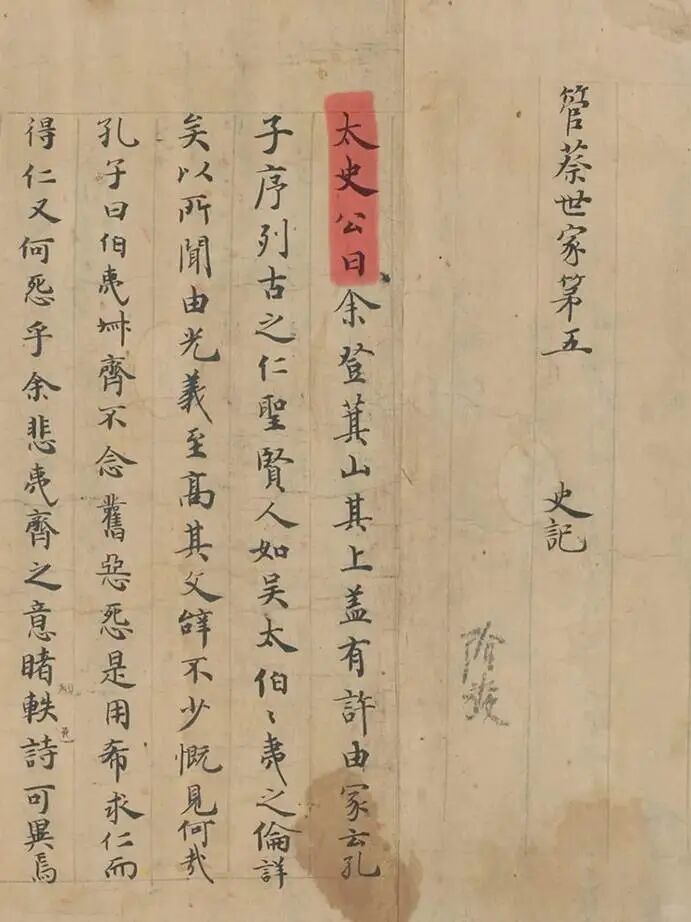 管蔡世家第五 史記
太史公曰余登萁山其上蓋有許由冢云孔
子序列古之仁聖賢人如吴太伯〻夷之倫詳
矣以所聞由光義至髙其文辝不少慨見何哉
孔子曰伯夷叔齊不念舊惡怨是用希求仁而
得仁又何怨乎余悲夷齊之意睹軼詩可異焉